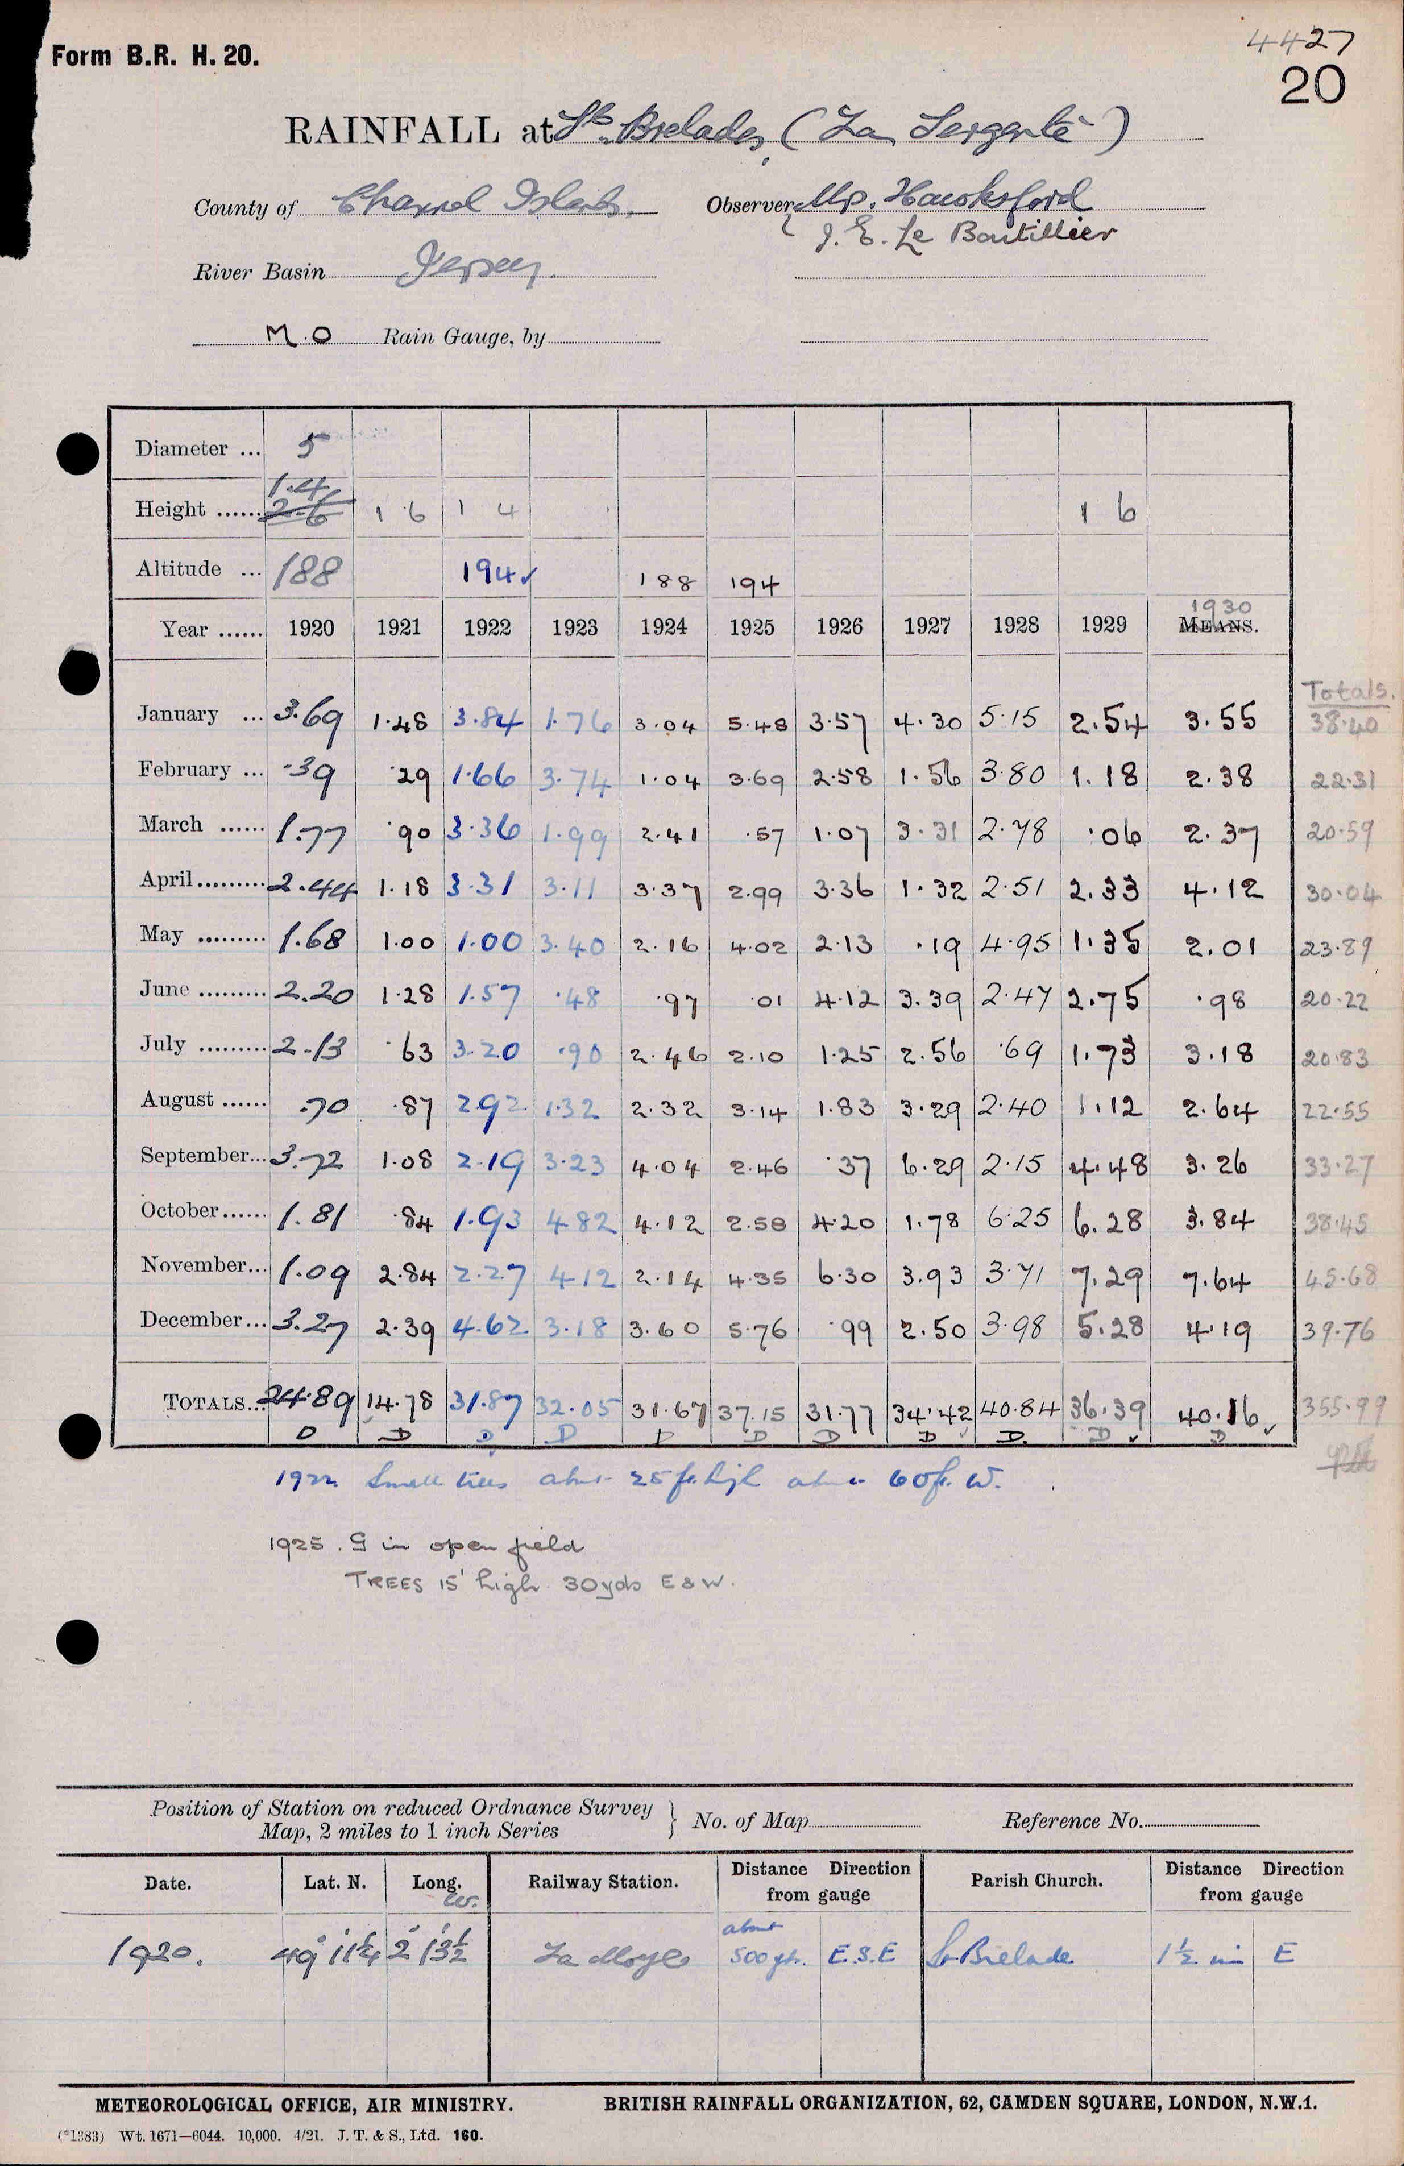 4427
Form B.R. H. 20.
20
RAINFALL at St. Brelades, (La Sergenté)
County of Channel Islands. Observer Mr. Hawksford
J. E. Le Boutillier
River Basin Jersey.
M.O Rain Gauge, by
Diameter ... 5
1.4
Height ...... 2.6 1 6 1 4 1 6
Altitude ... 188 194✓ 188 194
1930
Year ...... 1920 1921 1922 1923 1924 1925 1926 1927 1928 1929 MEANS.
Totals.
January ... 3.69 1.48 3.84 1.76 3.04 5.48 3.57 4.30 5.15 2.54 3.55 38.40
February ... .39 .29 1.66 3.74 1.04 3.69 2.58 1.56 3.80 1.18 2.38 22.31
March ...... 1.77 .90 3.36 1.99 2.41 .57 1.07 3.31 2.78 .06 2.37 20.59
April ......... 2.44 1.18 3.31 3.11 3.37 2.99 3.36 1.32 2.51 2.33 4.12 30.04
May ......... 1.68 1.00 1.00 3.40 2.16 4.02 2.13 .19 4.95 1.35 2.01 23.89
June ......... 2.20 1.28 1.57 .48 .97 .01 4.12 3.39 2.47 2.75 .98 20.22
July ......... 2.13 .63 3.20 .90 2.46 2.10 1.25 2.56 .69 1.73 3.18 20.83
August ...... .70 .87 2.92 1.32 2.32 3.14 1.83 3.29 2.40 1.12 2.64 22.55
September... 3.72 1.08 2.19 3.23 4.04 2.46 .37 6.29 2.15 4.48 3.26 33.27
October...... 1.81 .84 1.93 4.82 4.12 2.58 4.20 1.78 6.25 6.28 3.84 38.45
November... 1.09 2.84 2.27 4.12 2.14 4.35 6.30 3.93 3.71 7.29 7.64 45.68
December... 3.27 2.39 4.62 3.18 3.60 5.76 .99 2.50 3.98 5.28 4.19 39.76
TOTALS... 24.89 14.78 31.87 32.05 31.67 37.15 31.77 34.42 40.84 36.39 40.16✓ 355.99
D D D D D D D D✓ D. D✓ D
1922 Small trees about 25 ft. high about 60 ft. W.
1925. G in open field
TREES 15' high 30yds E & W.
Position of Station on reduced Ordnance Survey
Map, 2 miles to 1 inch Series } No. of Map Reference No.
Date. Lat. N. Long. W. Railway Station. Distance Direction from gauge Parish Church. Distance Direction from gauge
about
1920. 49° 11¼' 2° 13½' La Moye 500 yds. E.S.E St Brelade 1½ mi E
METEOROLOGICAL OFFICE, AIR MINISTRY. BRITISH RAINFALL ORGANIZATION, 62, CAMDEN SQUARE, LONDON, N.W.1.
(*1383) Wt. 1671—6044. 10,000. 4/21. J. T. & S., Ltd. 160.